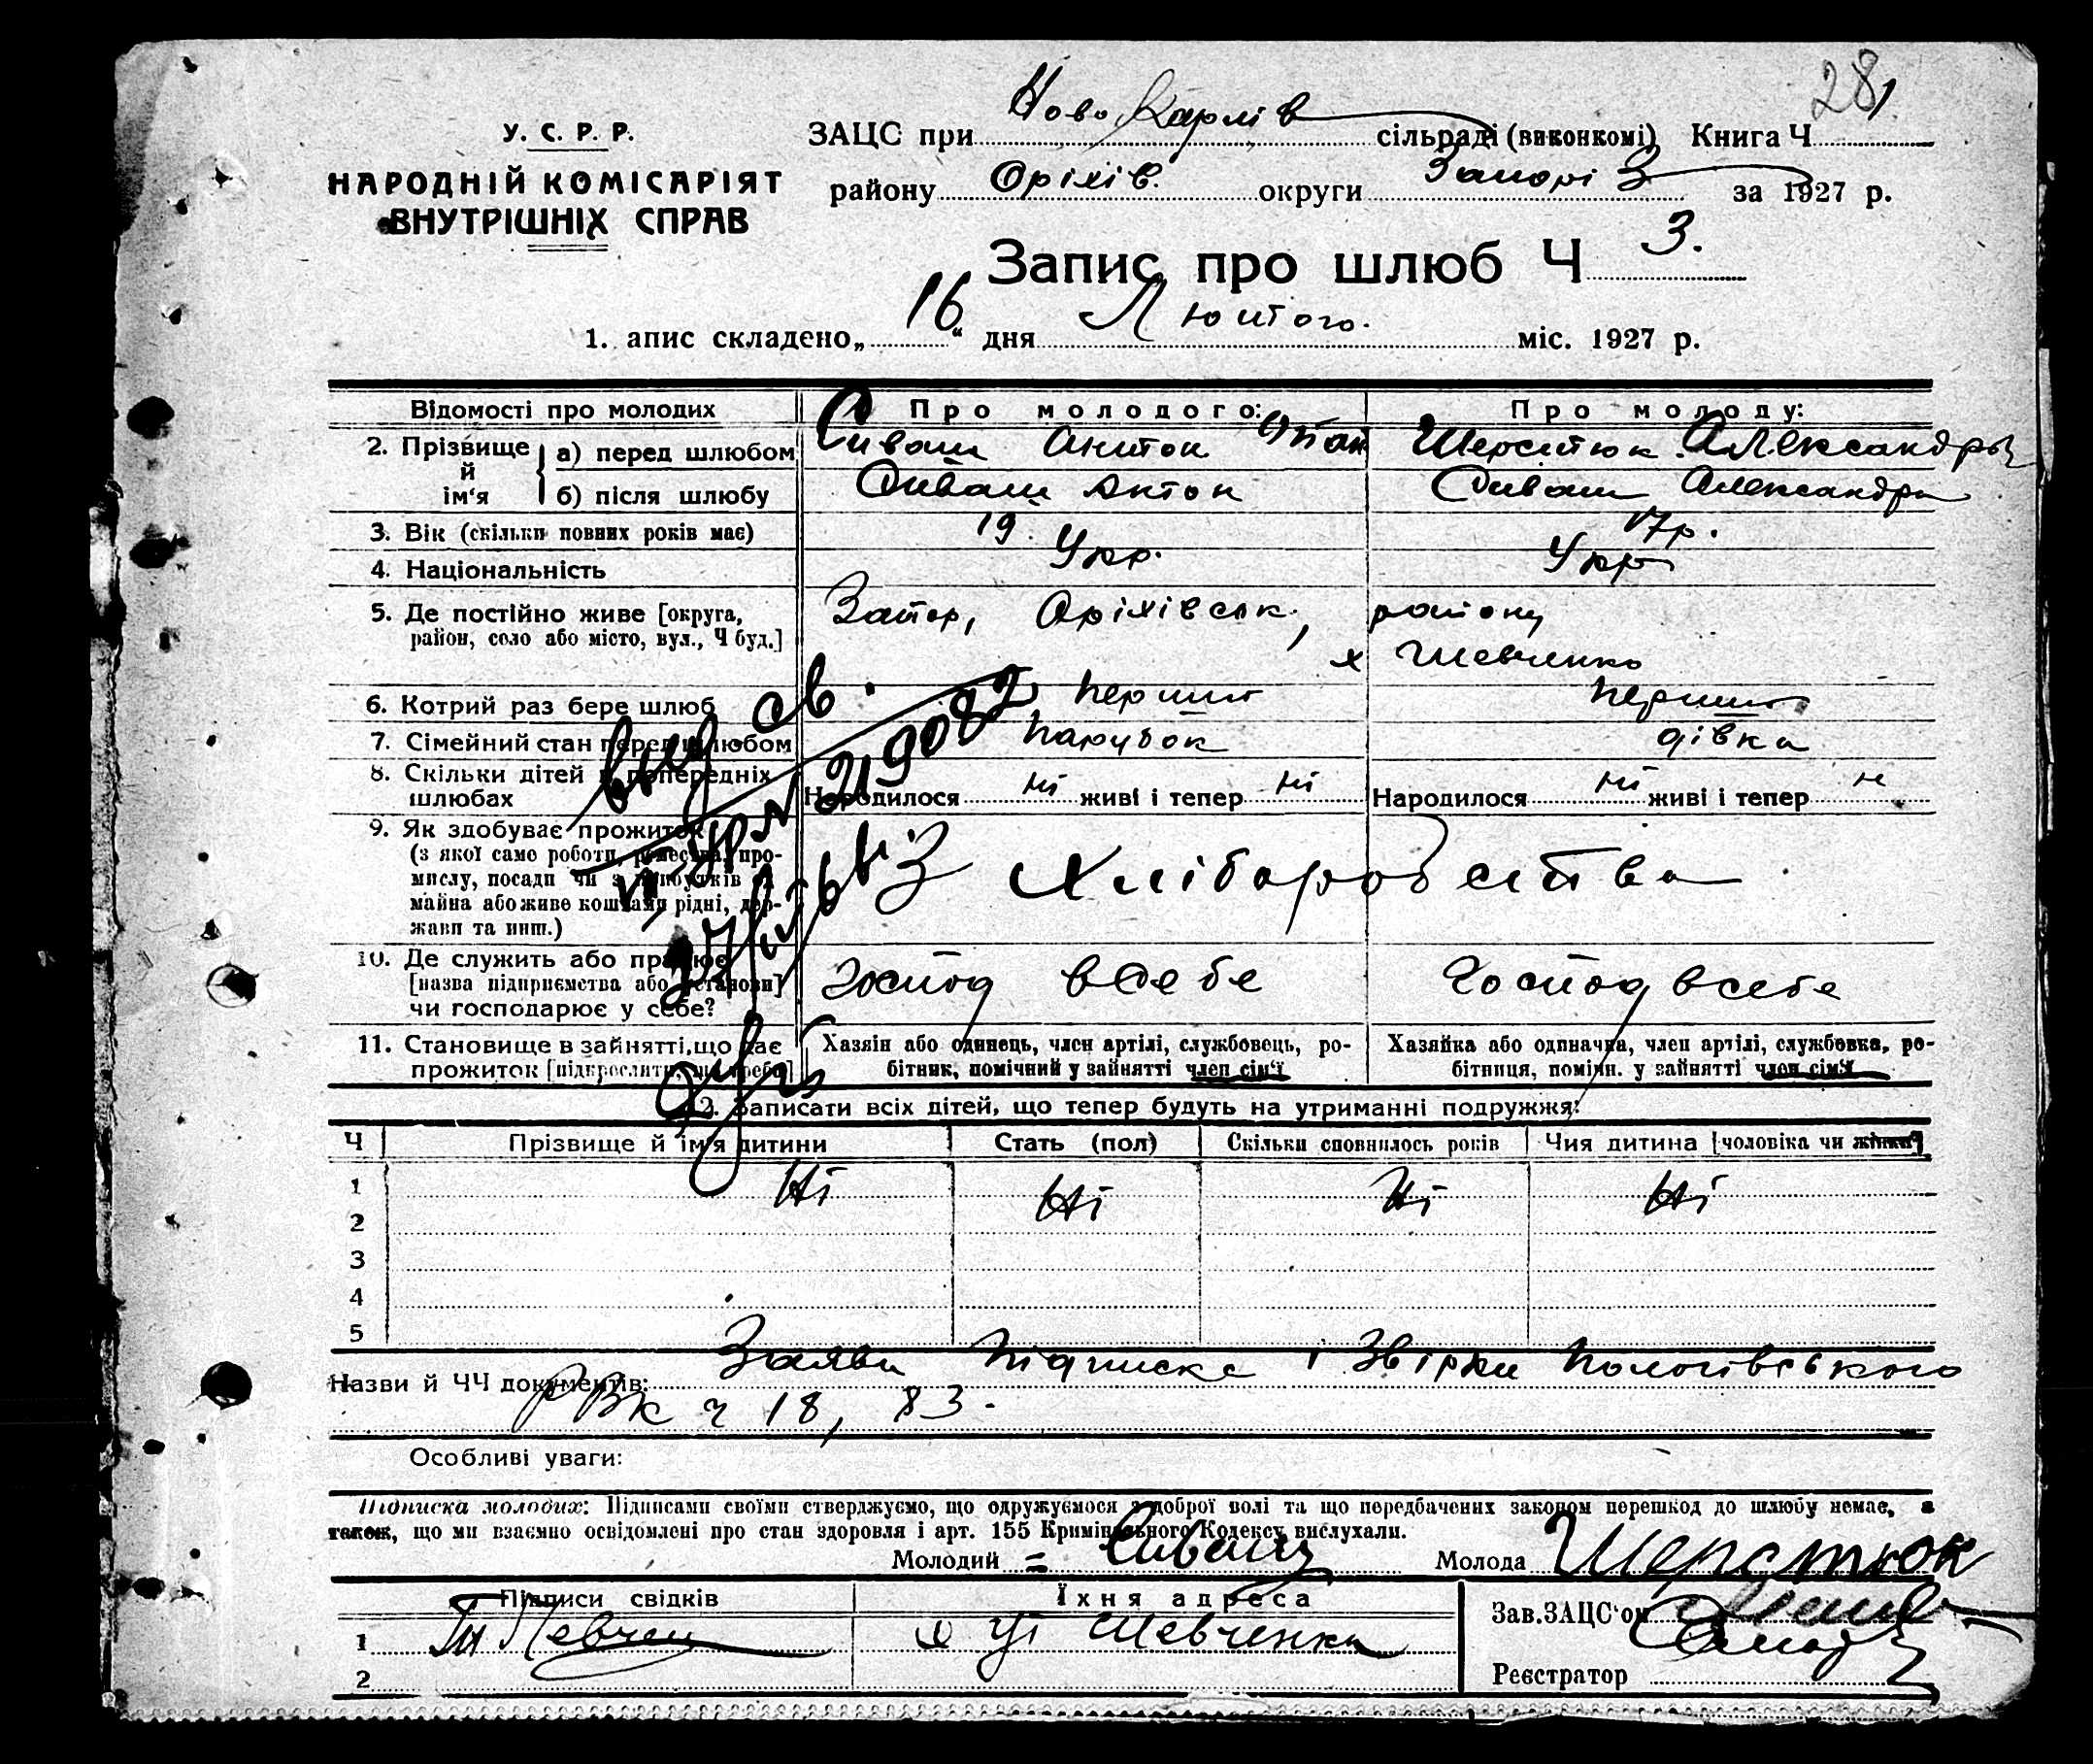 281
У. С. Р. Р.
НАРОДНІЙ КОМІСАРІЯТ
ВНУТРІШНІХ СПРАВ
ЗАЦС при Ново Карлів сільраді (виконкомі) Книга Ч
району Оріхів. округи Запорі за 1927 р.
Запис про шлюб Ч 3.
1. апис складено „16“ дня Лютого. міс. 1927 р.
Відомості про молодих Про молодого: Про молоду:
2. Прізвище й ім‘я а) перед шлюбом Сиваш Антон Шерстюк Александра
б) після шлюбу Сиваш Антон Сиваш Александра
3. Вік (скільки повних років має) 19. 17р.
4. Національність Укр. Укр
5. Де постійно живе [округа, Запор, Оріхівськ, району
район, село або місто, вул., Ч буд.] х Шевченко
6. Котрий раз бере шлюб перший перший
7. Сімейний стан перед шлюбом парубок дівка
8. Скільки дітей в попередніх
шлюбах Народилося ні живі і тепер ні Народилося ні живі і тепер н
9. Як здобуває прожиток
(з якої саме роботи, ремества, про-
мислу, посади чи з прибутків
майна або живе коштами рідні, дер-
жави та инш.)
З Хліборобства
10. Де служить або працює
[назва підприємства або установи] господ в себе господ в себе
чи господарює у себе?
11. Становище в зайнятті, що дає Хазяїн або одинець, член артілі, службовець, ро- Хазяйка або одиначка, член артілі, службовка, ро-
прожиток [підкреслити, що треба] бітник, помічний у зайнятті член сім‘ї бітниця, помічн. у зайнятті член сім‘ї
вид св.
219082
12. Записати всіх дітей, що тепер будуть на утриманні подружжя:
Ч Прізвище й ім‘я дитини Стать (пол) Скільки сповнилось років Чия дитина [чоловіка чи жінки]
1 Ні Ні Ні Ні
2
3
4
5
Назви й ЧЧ документів: Заяви підписка і Звірки Пологівського
РВК ч 18, 83.
Особливі уваги:
Підписка молодих: Підписами своїми стверджуємо, що одружуємося з доброї волі та що передбачених законом перешкод до шлюбу немає, а
також, що ми взаємно освідомлені про стан здоровля і арт. 155 Кримінального Кодексу вислухали.
Молодий Сиваш Молода Шерстюк
Підписи свідків Їхня адреса Зав.ЗАЦС‘ом
1 х Шевченка
2 Реєстратор